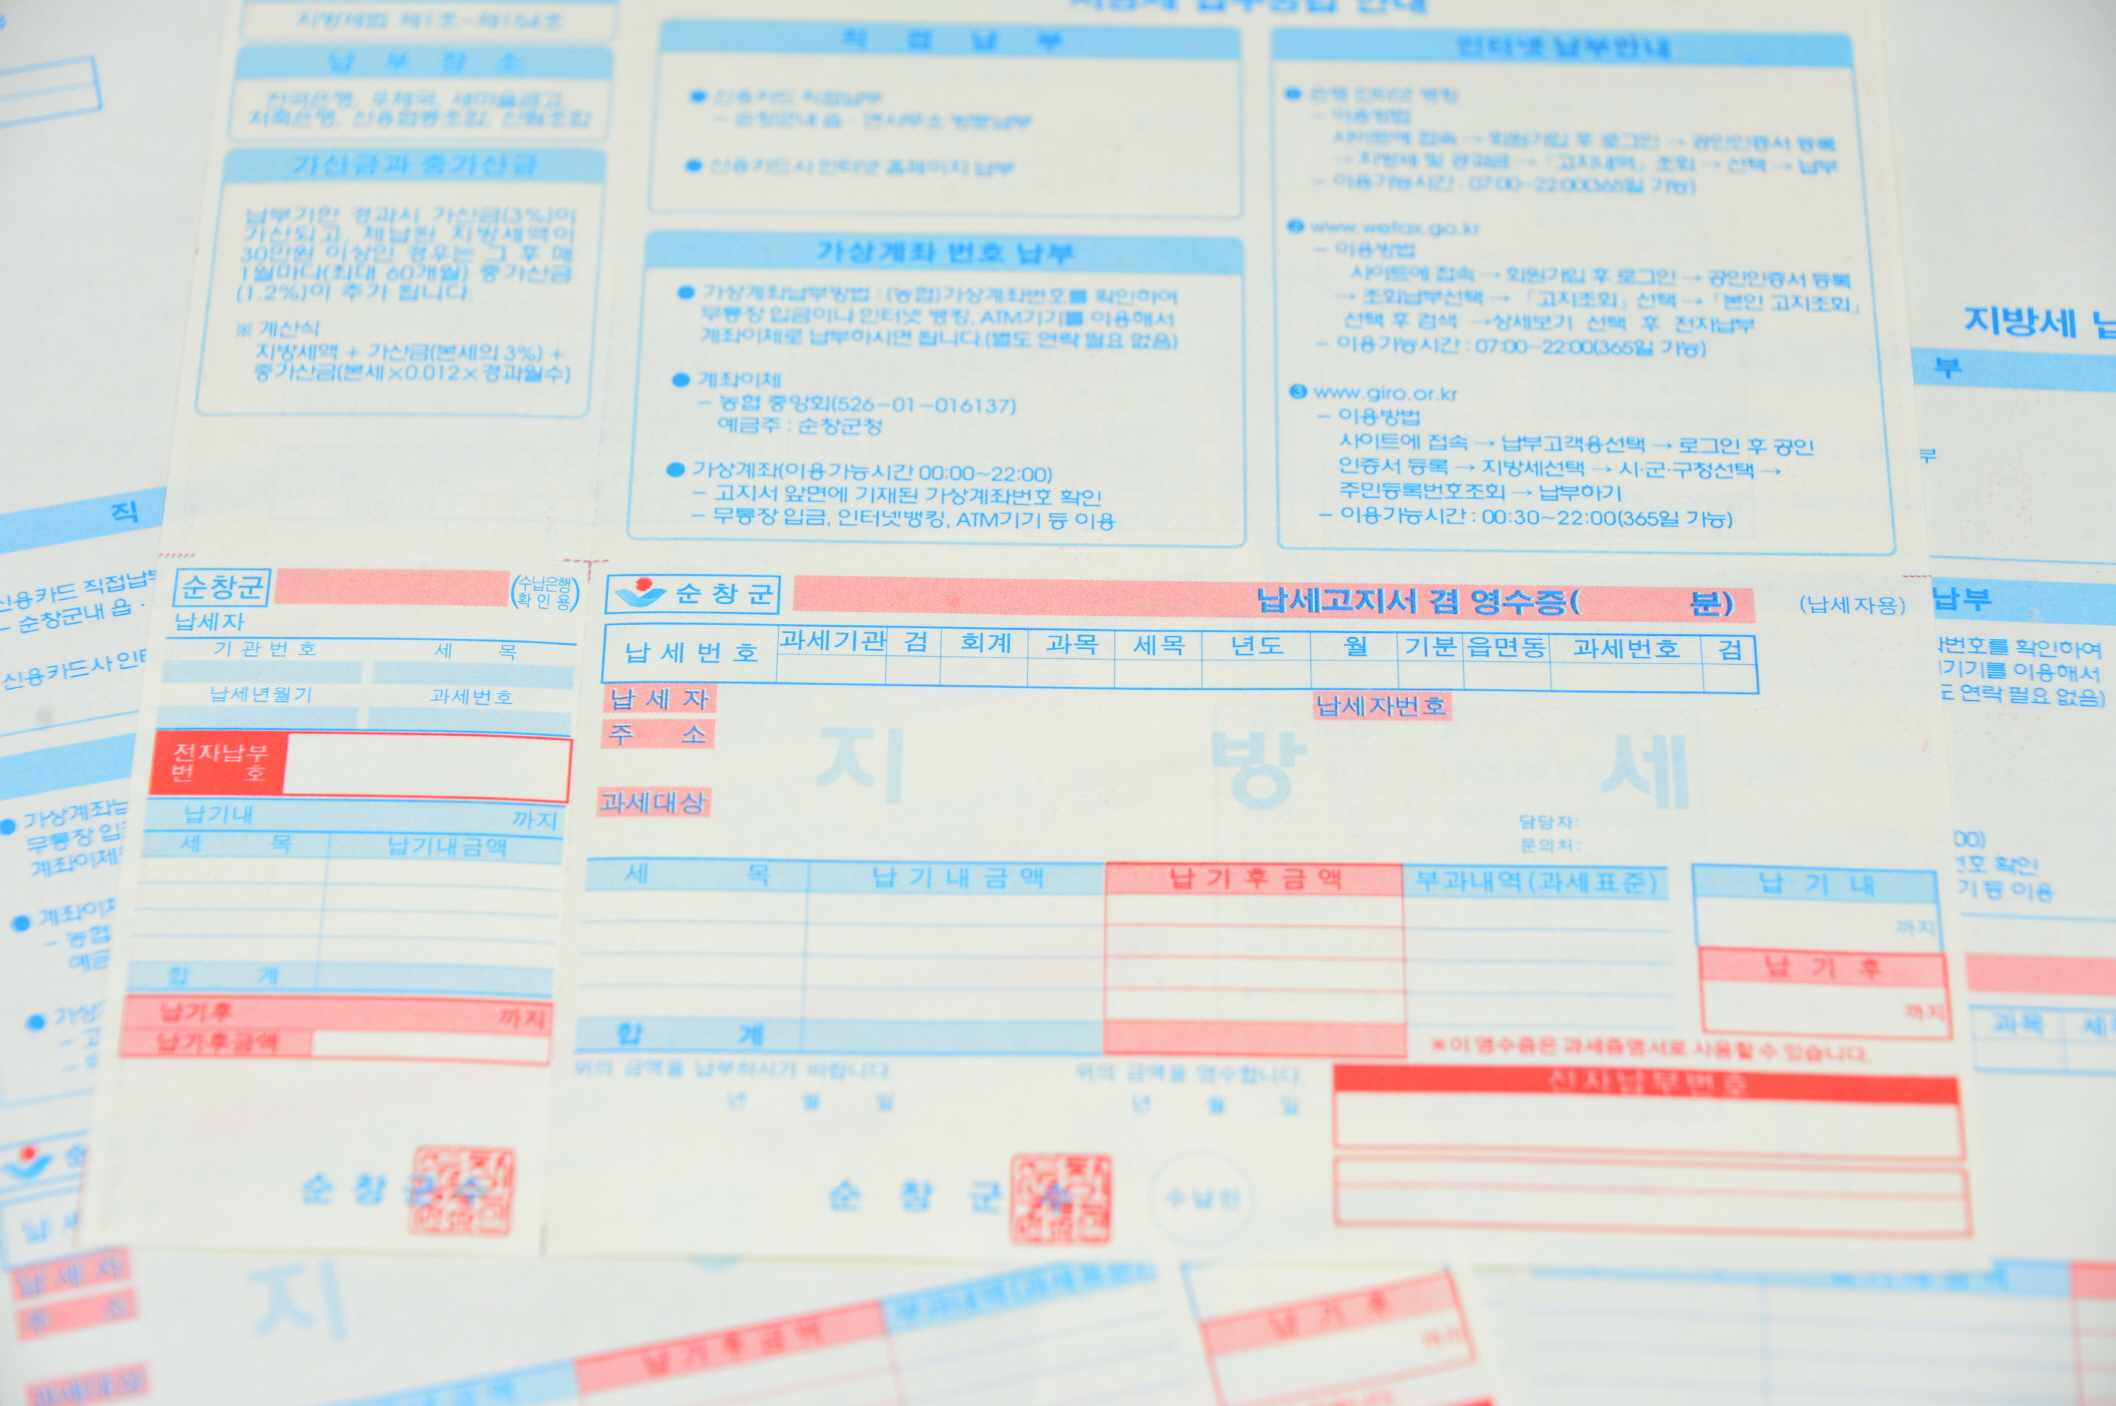 지방세 납부방법 안내
지방세법 제1조~제154조
납 부 장 소
전국은행, 우체국, 새마을금고,
저축은행, 신용협동조합, 산림조합
가산금과 중가산금
납부기한 경과시 가산금(3%)이
가산되고, 체납된 지방세액이
30만원 이상인 경우는 그 후 매
1월마다(최대 60개월) 중가산금
(1.2%)이 추가 됩니다.
※ 계산식
지방세액 + 가산금(본세의 3%) +
중가산금(본세×0.012×경과월수)
직 접 납 부
● 신용카드 직접납부
– 순창군내 읍·면사무소 방문납부
● 신용카드사 인터넷 홈페이지 납부
가상계좌 번호 납부
● 가상계좌납부방법 : (농협)가상계좌번호를 확인하여
무통장 입금이나 인터넷 뱅킹, ATM기기를 이용해서
계좌이체로 납부하시면 됩니다.(별도 연락 필요 없음)
● 계좌이체
– 농협 중앙회(526-01-016137)
예금주 : 순창군청
● 가상계좌(이용가능시간 00:00~22:00)
– 고지서 앞면에 기재된 가상계좌번호 확인
– 무통장 입금, 인터넷뱅킹, ATM기기 등 이용
인터넷 납부안내
❶ 은행 인터넷 뱅킹
– 이용방법
사이트에 접속 → 회원가입 후 로그인 → 공인인증서 등록
→ 지방세 및 공과금 → 「고지내역」 조회 → 선택 → 납부
– 이용가능시간 : 07:00~22:00(365일 가능)
❷ www.wetax.go.kr
– 이용방법
사이트에 접속 → 회원가입 후 로그인 → 공인인증서 등록
→ 조회납부선택 → 「고지조회」 선택 → 「본인 고지조회」
선택 후 검색 →상세보기 선택 후 전자납부
– 이용가능시간 : 07:00~22:00(365일 가능)
❸ www.giro.or.kr
– 이용방법
사이트에 접속 → 납부고객용선택 → 로그인 후 공인
인증서 등록 → 지방세선택 → 시·군·구청선택 →
주민등록번호조회 → 납부하기
– 이용가능시간 : 00:30~22:00(365일 가능)
순창군 (수납은행 확인용)
납세자
기관번호 세 목
납세년월기 과세번호
전자납부
번 호
납기내 까지
세 목 납기내금액
합 계
납기후 까지
납기후금액
순창군수
순창군 납세고지서 겸 영수증( 분) (납세자용)
납세번호 과세기관 검 회계 과목 세목 년도 월 기분 읍면동 과세번호 검
납 세 자 납세자번호
주 소
지 방 세
과세대상
담당자:
문의처:
세 목 납기내금액 납기후금액 부과내역(과세표준)
납 기 내
까지
납 기 후
까지
합 계
※이 영수증은 과세증명서로 사용할 수 있습니다.
위의 금액을 납부하시기 바랍니다. 위의 금액을 영수합니다.
년 월 일 년 월 일
전자납부번호
순 창 군 수 수납인
직
신용카드 직접납부
– 순창군내 읍 ·
신용카드사 인터
● 가상계좌납
무통장 입
계좌이체
● 계좌이체
– 농협
예금
● 가상
순
납 세
납 세 자
주 소
과세대상
지
납기후금액 부과내역(과세표준)
납 기 후
까지
지방세 납
부
부
납부
번호를 확인하여
기기를 이용해서
연락 필요 없음)
00)
번호 확인
기 등 이용
과목 세